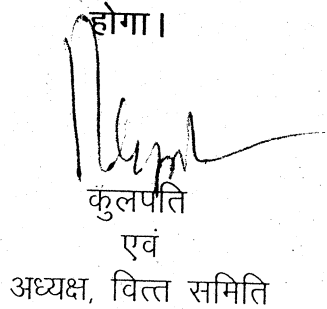 होगा।
कुलपति
एवं
अध्यक्ष, वित्त समिति